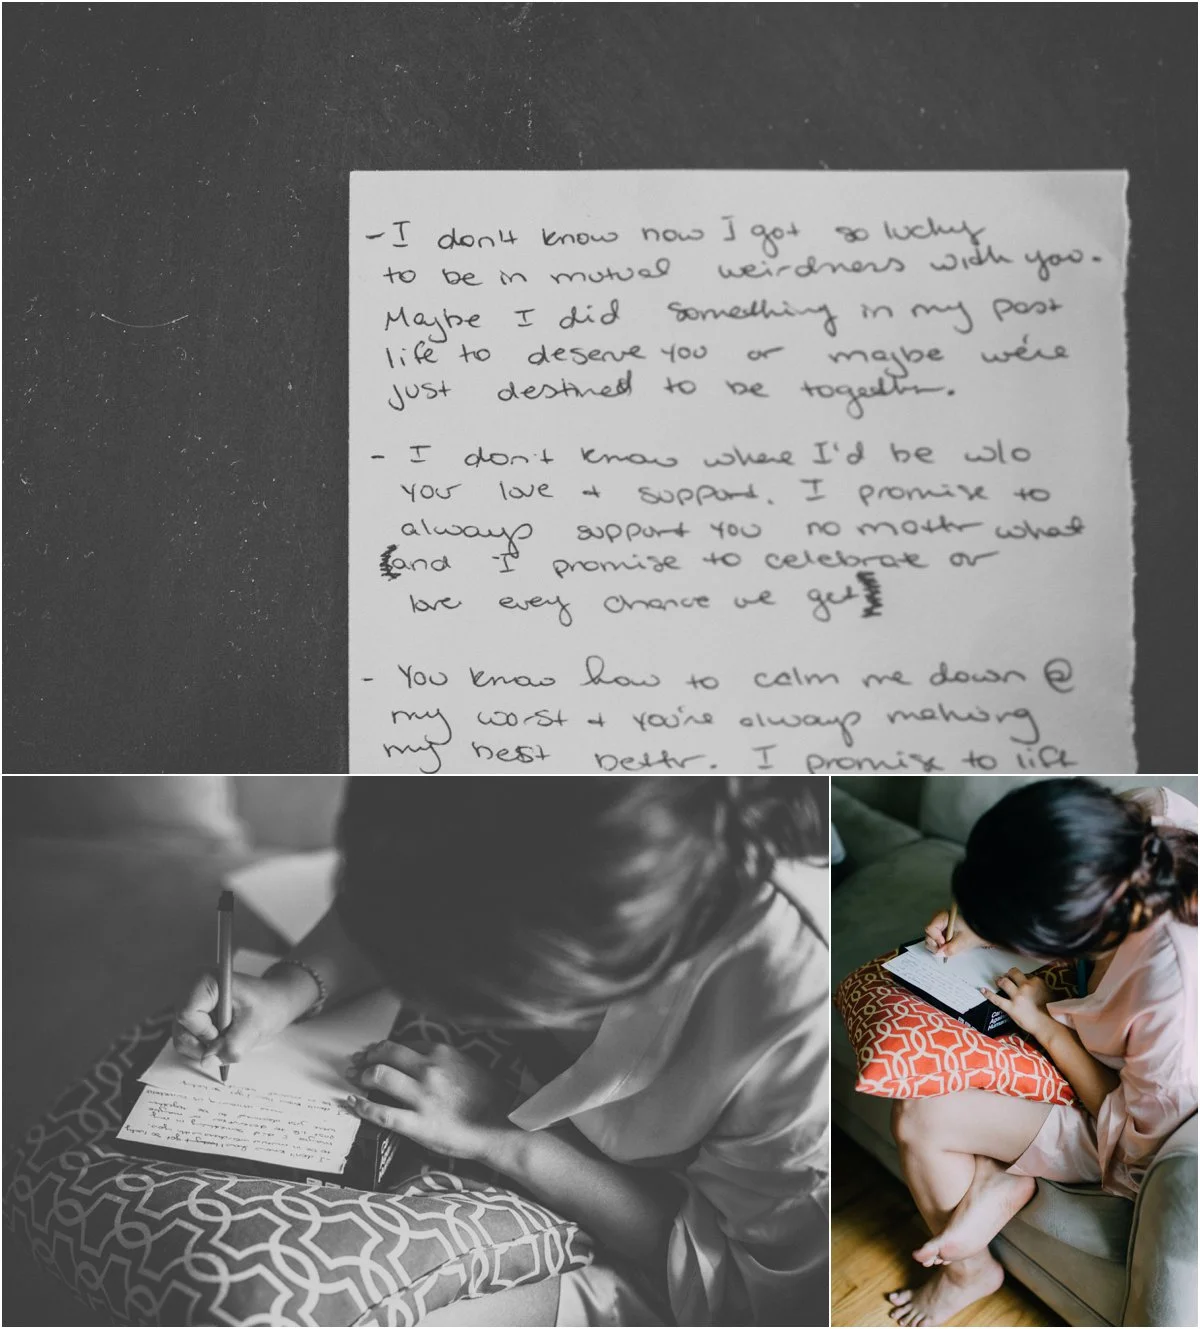 - I don't know now I got so lucky
to be in mutual weirdness with you.
Maybe I did something in my past
life to deserve you or maybe we're
just destined to be together.
- I don't know where I'd be w/o
your love + support. I promise to
always support you no matter what
and I promise to celebrate or
love every chance we get
- You know how to calm me down @
my worst + you're always making
my best better. I promise to lift
Cards
Against
Humanity